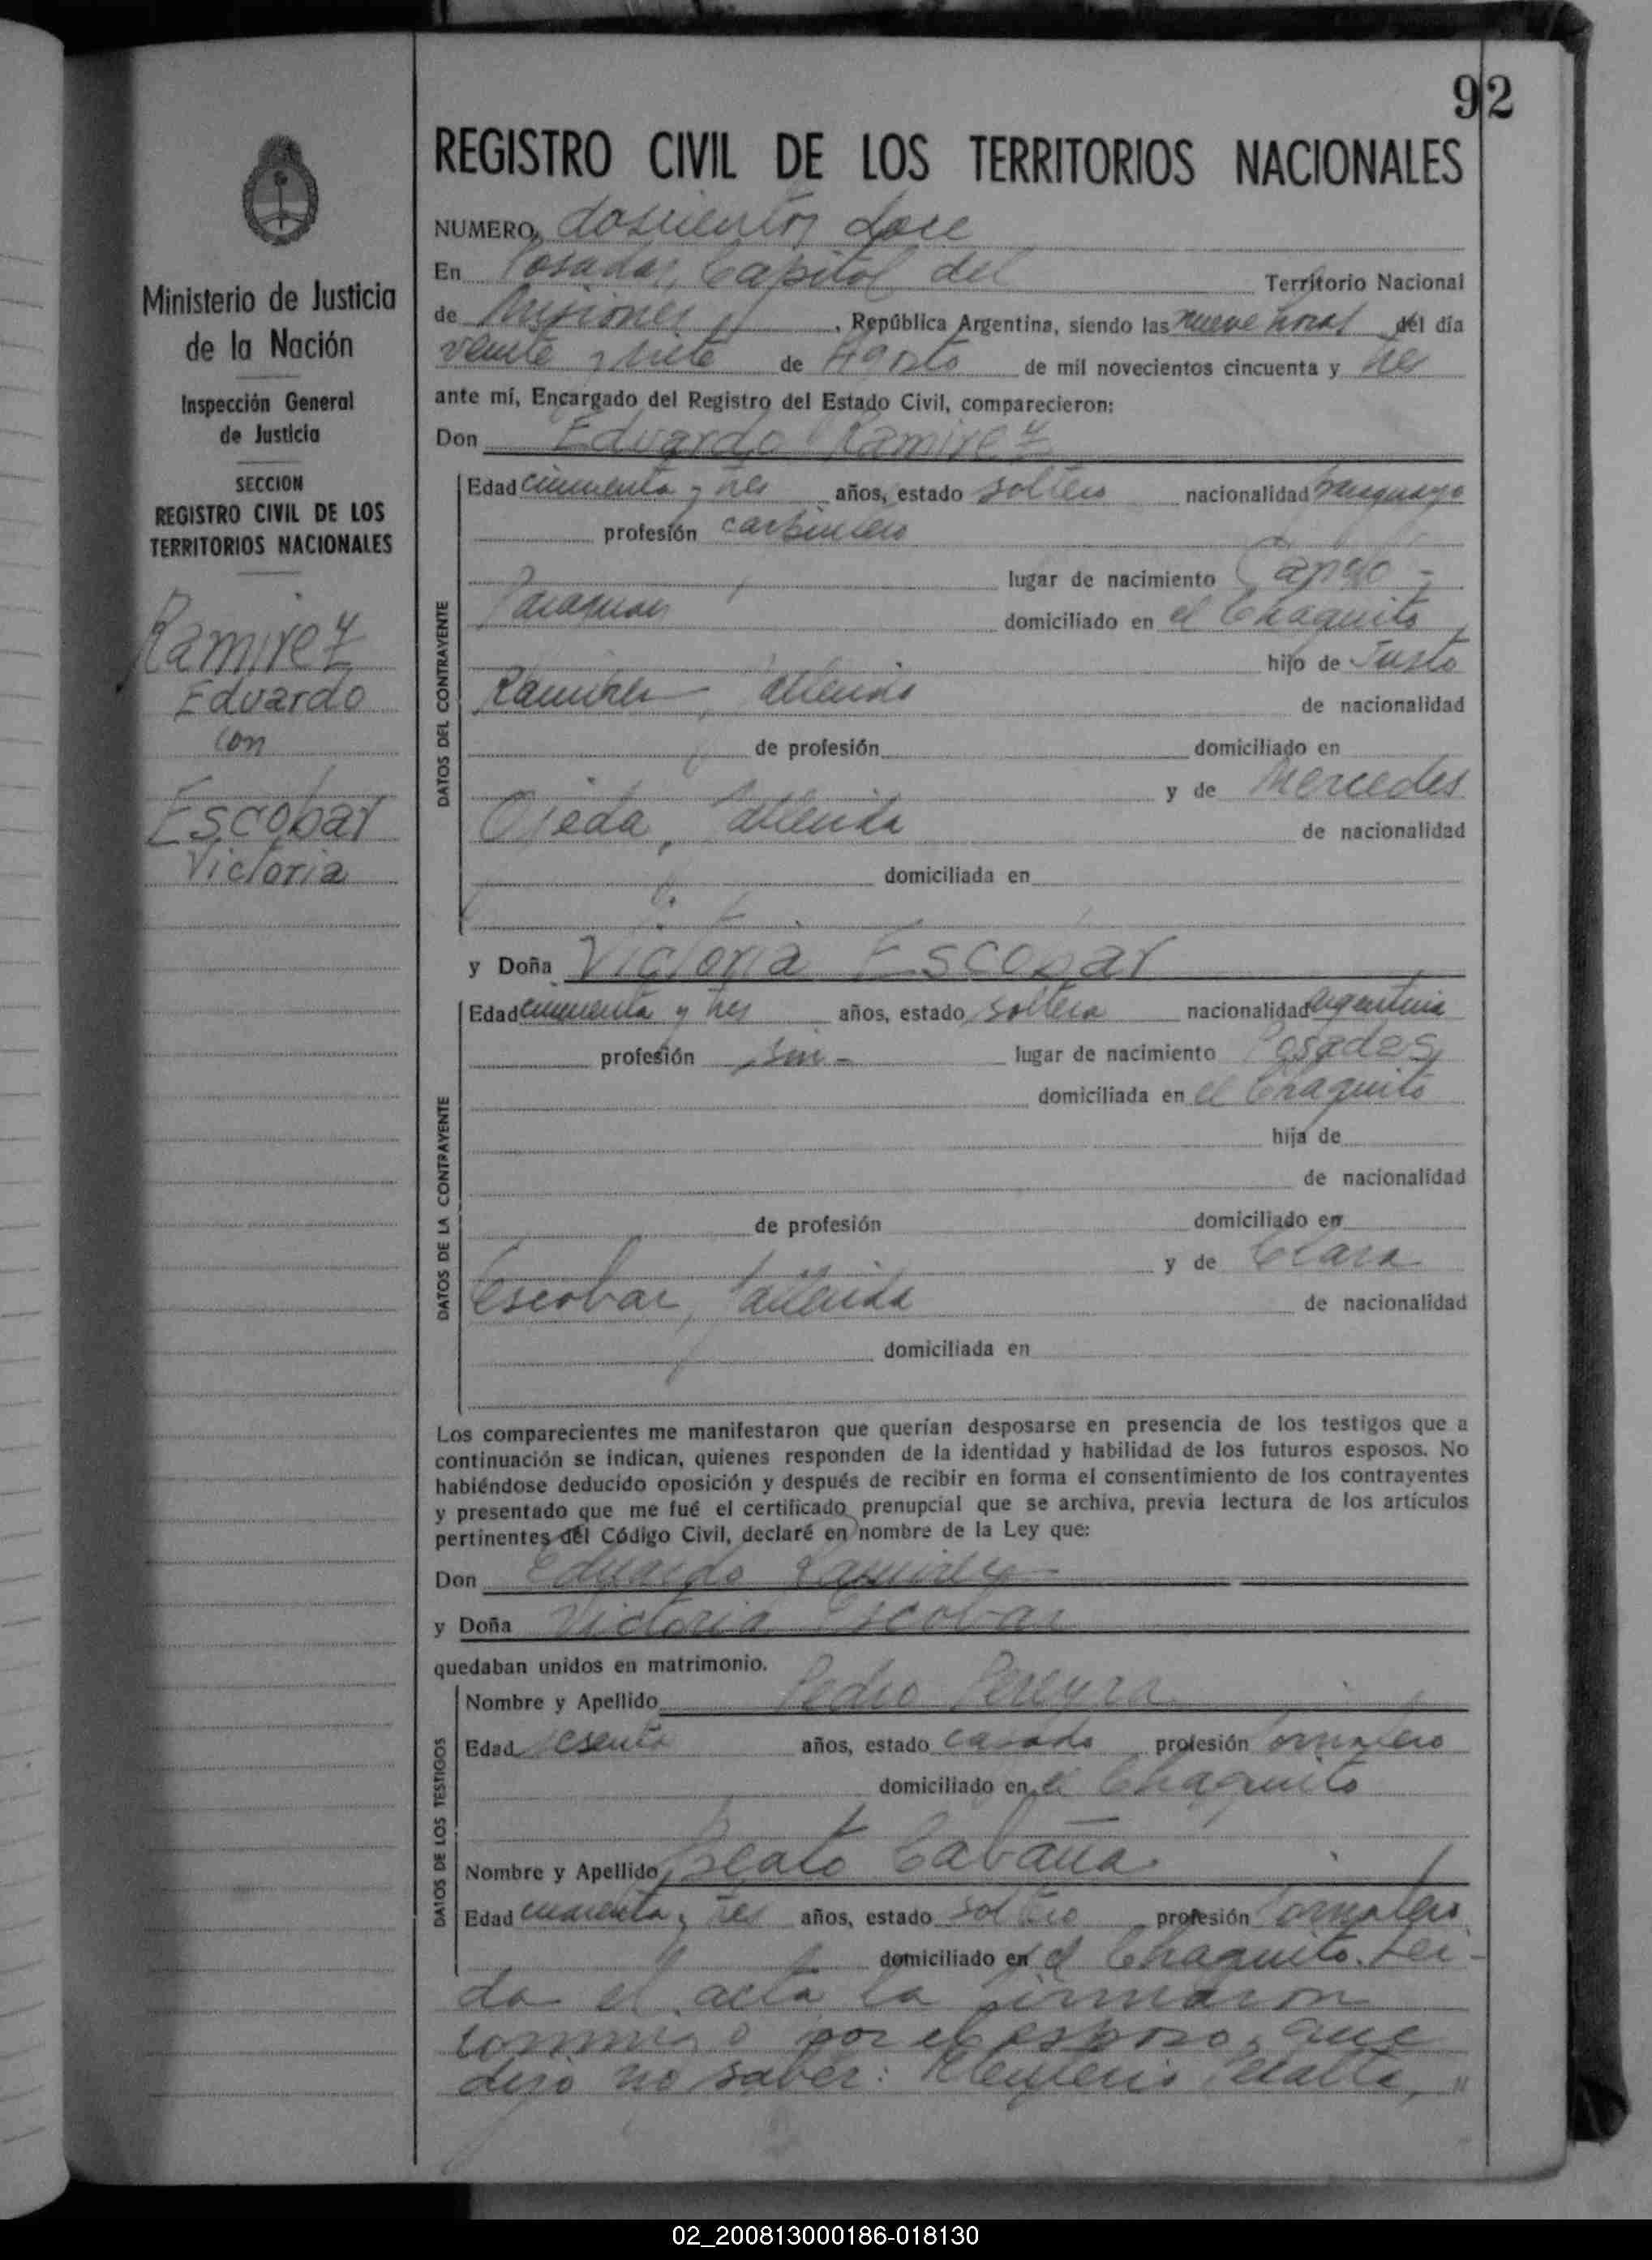 92
REGISTRO CIVIL DE LOS TERRITORIOS NACIONALES
Ministerio de Justicia
de la Nación
Inspección General
de Justicia
SECCION
REGISTRO CIVIL DE LOS
TERRITORIOS NACIONALES
Ramirez
Eduardo
con
Escobar
Victoria
NUMERO doscientos doce
En Posadas, Capital del Territorio Nacional
de Misiones, República Argentina, siendo las nueve horas del día
veinte y siete de Agosto de mil novecientos cincuenta y tres
ante mí, Encargado del Registro del Estado Civil, comparecieron:
Don Eduardo Ramirez
DATOS DEL CONTRAYENTE
Edad cincuenta y tres años, estado soltero nacionalidad paraguayo
profesión carpintero
lugar de nacimiento
Paraguay domiciliado en el Chaquito
hijo de Justo
Ramirez, de nacionalidad
de profesión domiciliado en
y de Mercedes
Ojeda, de nacionalidad
domiciliada en
y Doña Victoria Escobar
DATOS DE LA CONTRAYENTE
Edad cincuenta y tres años, estado soltera nacionalidad argentina
profesión sin - lugar de nacimiento Posadas,
domiciliada en el Chaquito
hija de
de nacionalidad
de profesión domiciliado en
y de Clara
Escobar, de nacionalidad
domiciliada en
Los comparecientes me manifestaron que querían desposarse en presencia de los testigos que a
continuación se indican, quienes responden de la identidad y habilidad de los futuros esposos. No
habiéndose deducido oposición y después de recibir en forma el consentimiento de los contrayentes
y presentado que me fué el certificado prenupcial que se archiva, previa lectura de los artículos
pertinentes del Código Civil, declaré en nombre de la Ley que:
Don Eduardo Ramirez
y Doña Victoria Escobar
quedaban unidos en matrimonio.
DATOS DE LOS TESTIGOS
Nombre y Apellido Pedro Pereyra
Edad sesenta años, estado casado profesión jornalero
domiciliado en el Chaquito
Nombre y Apellido Beato Cabaña
Edad cuarenta y tres años, estado soltero profesión jornalero
domiciliado en el Chaquito. Lei-
da el acta la firmaron
conmigo por el esposo, que
dijo no saber: Eleuterio Peralta, "
02_200813000186-018130